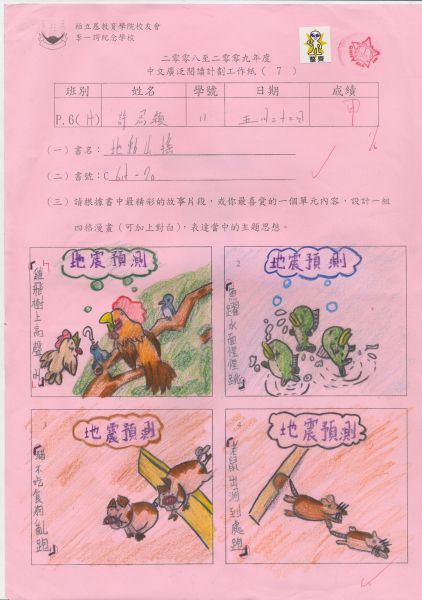 柏立基教育學院校友會
李一諤紀念學校
整齊
二零零八至二零零九年度
中文廣泛閱讀計劃工作紙（7）
班別 姓名 學號 日期 成績
P.6(片) 11 甲
（一）書名：地動山搖
（二）書號：C 61-70
（三）請根據書中最精彩的故事片段，或你最喜愛的一個單元內容，設計一組
四格漫畫（可加上對白），表達當中的主題思想。
地震預測
雞飛樹上高聲叫
2
地震預測
魚躍水面惶惶跳
3
地震預測
豬不吃食狗亂跑
4
地震預測
老鼠出洞到處跑